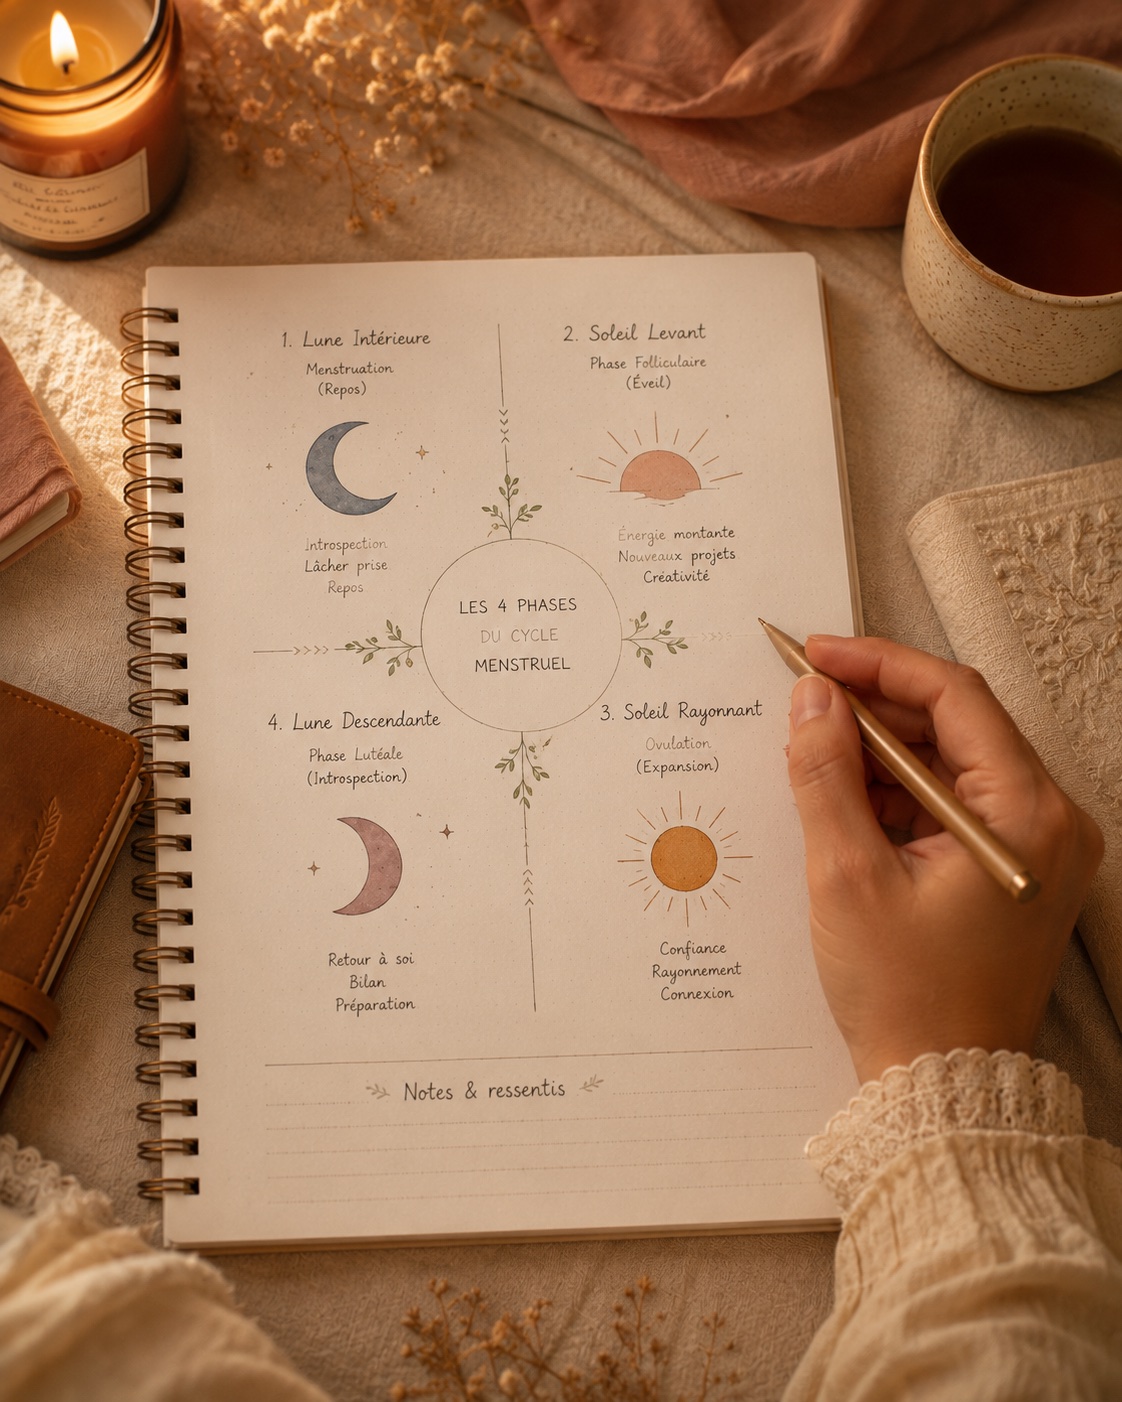 1. Lune Intérieure
Menstruation
(Repos)
Introspection
Lâcher prise
Repos
2. Soleil Levant
Phase Folliculaire
(Éveil)
Énergie montante
Nouveaux projets
Créativité
LES 4 PHASES
DU CYCLE
MENSTRUEL
3. Soleil Rayonnant
Ovulation
(Expansion)
Confiance
Rayonnement
Connexion
4. Lune Descendante
Phase Lutéale
(Introspection)
Retour à soi
Bilan
Préparation
Notes & ressentis